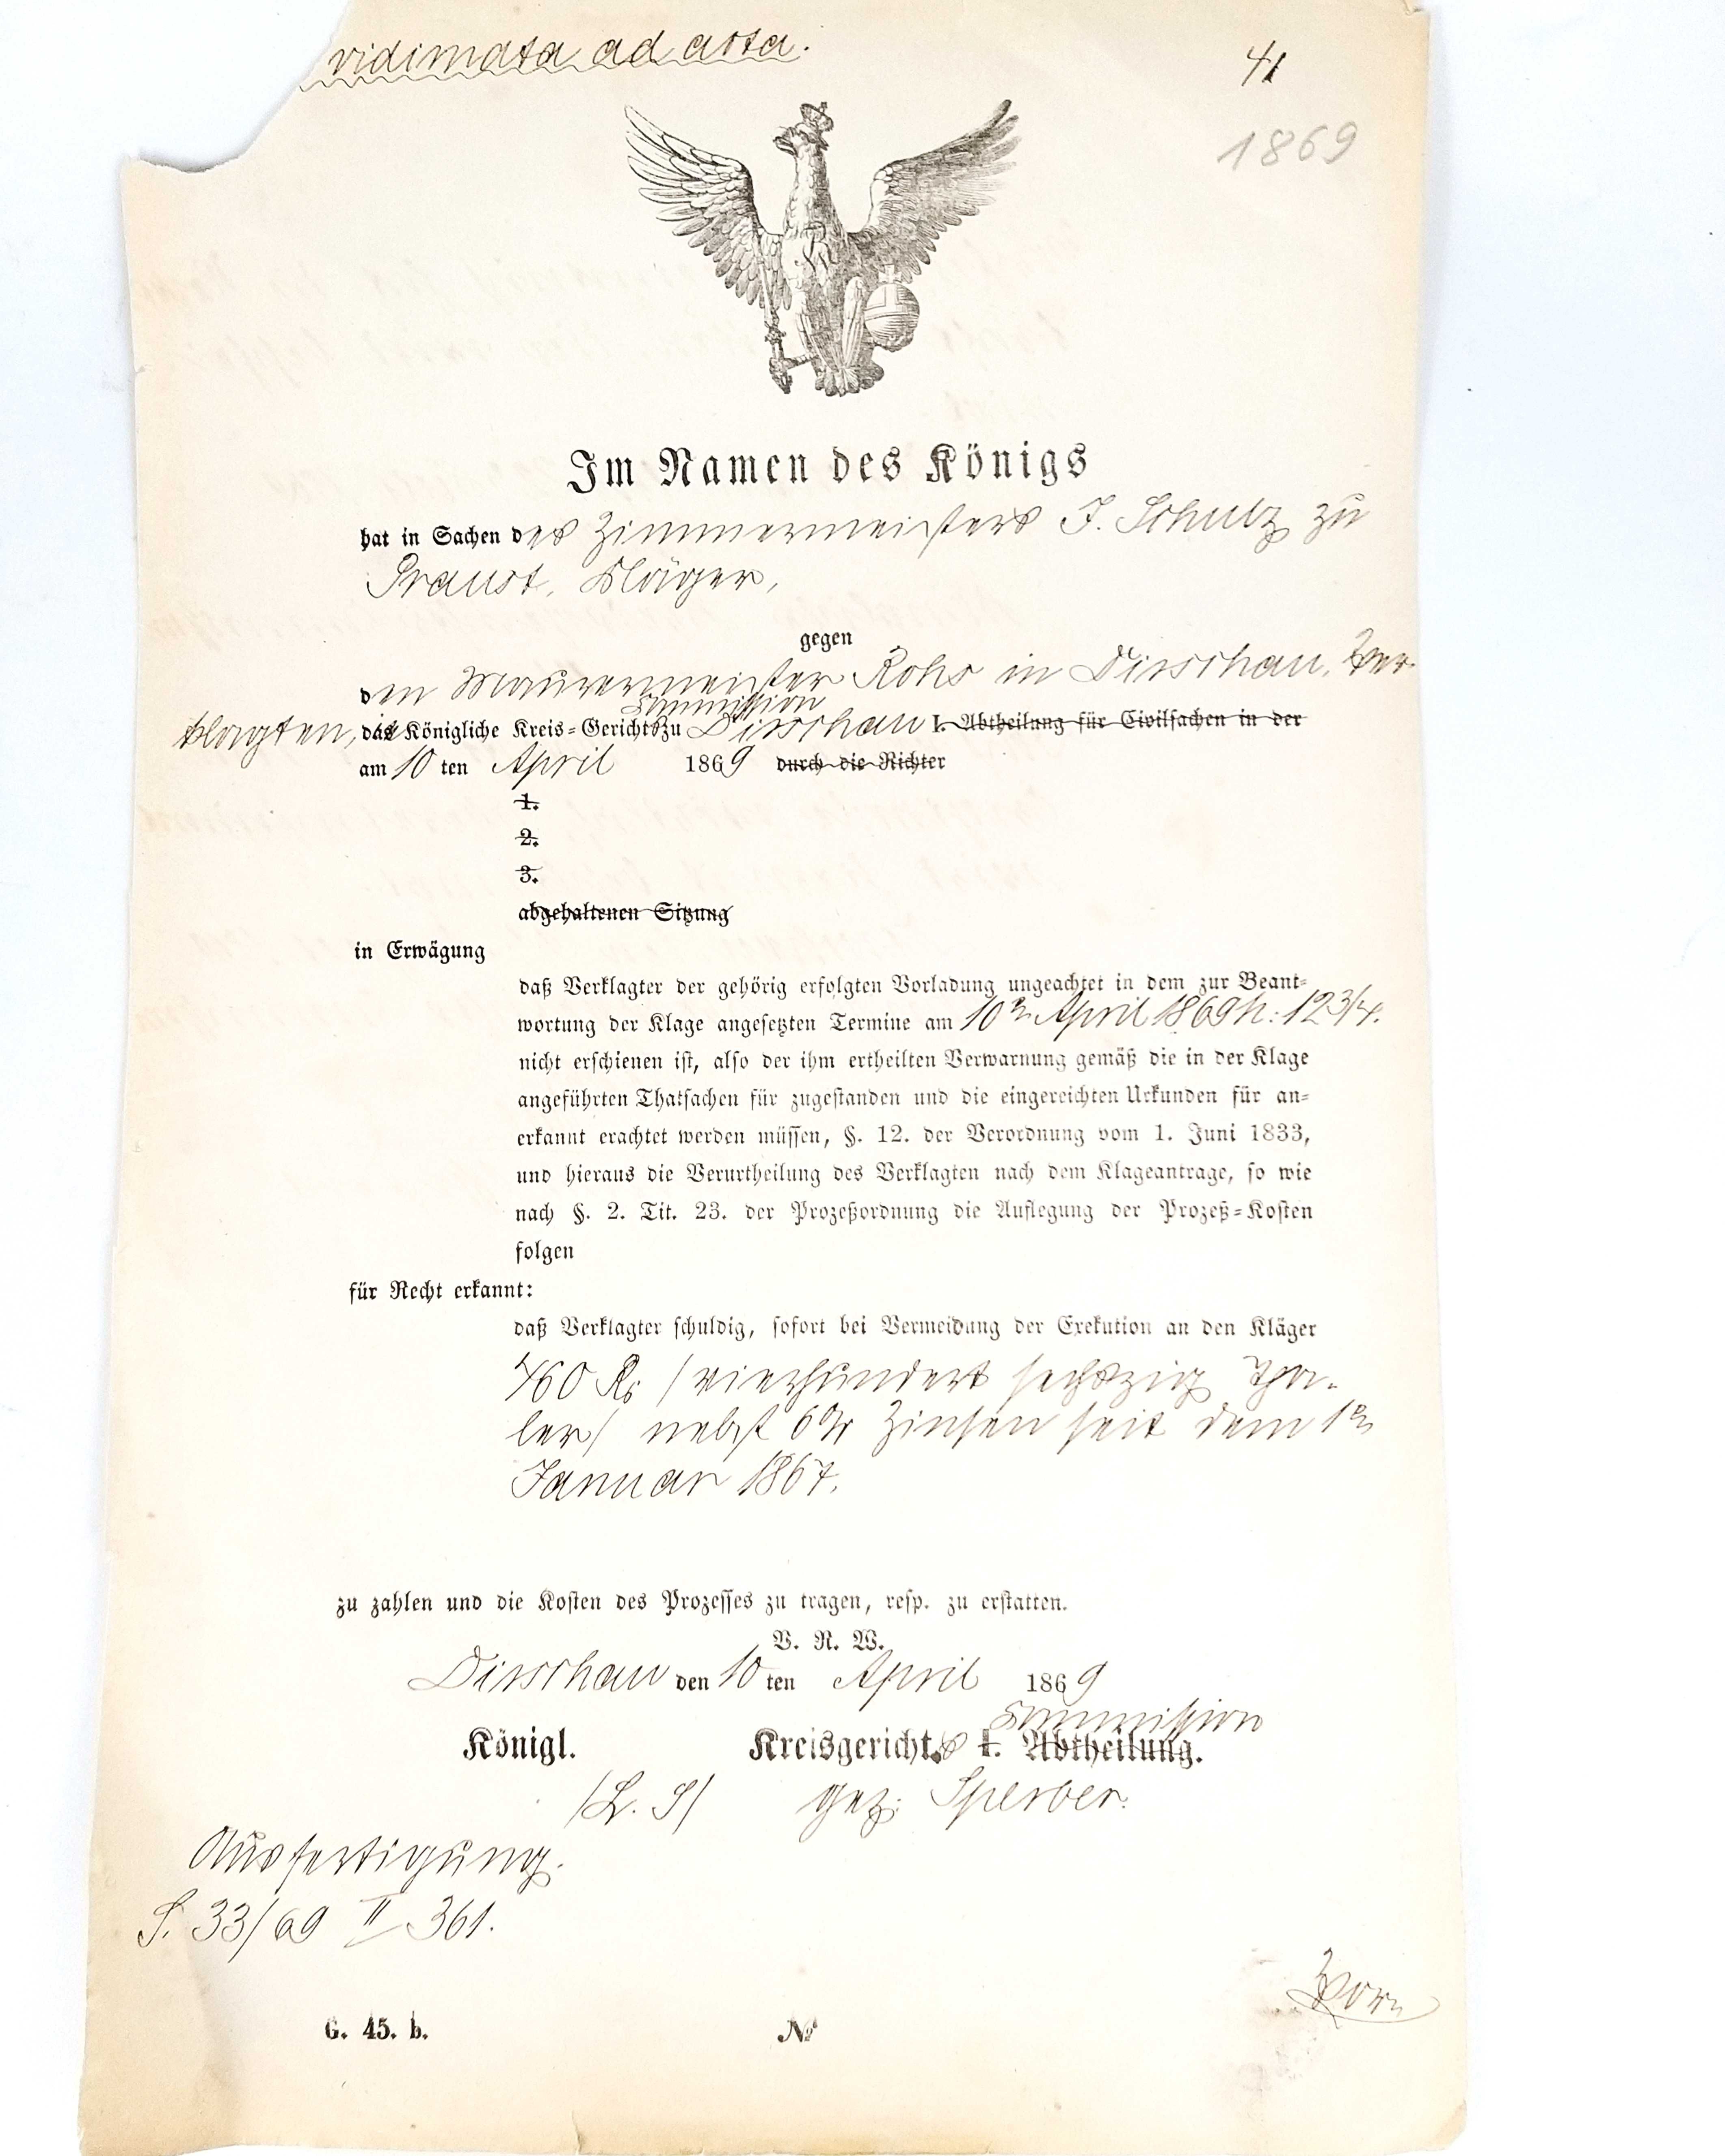 vidimata ad acta.
41
1869
Im Namen des Königs
hat in Sachen des Zimmermeisters J. Schulz zu
Praust, Kläger,
gegen
den Maurermeister Rohs in Dirschau, Ver
klagten, die Königliche Kreis-Gerichts Commission zu Dirschau I. Abtheilung für Civilsachen in der
am 10 ten April 1869 durch die Richter
1.
2.
3.
abgehaltenen Sitzung
in Erwägung
daß Verklagter der gehörig erfolgten Vorladung ungeachtet in dem zur Beant-
wortung der Klage angesetzten Termine am 10n April 1869 h: 12 3/4.
nicht erschienen ist, also der ihm ertheilten Verwarnung gemäß die in der Klage
angeführten Thatsachen für zugestanden und die eingereichten Urkunden für an-
erkannt erachtet werden müssen, §. 12. der Verordnung vom 1. Juni 1833,
und hieraus die Verurtheilung des Verklagten nach dem Klageantrage, so wie
nach §. 2. Tit. 23. der Prozeßordnung die Auflegung der Prozeß-Kosten
folgen
für Recht erkannt:
daß Verklagter schuldig, sofort bei Vermeidung der Exekution an den Kläger
460 Rt /vierhundert sechszig Tha-
ler/ nebst 6% Zinsen seit dem 1n
Januar 1867.
zu zahlen und die Kosten des Prozesses zu tragen, resp. zu erstatten.
V. R. W.
Dirschau den 10 ten April 1869
Commission
Königl. Kreisgerichts I. Abtheilung.
/L. S/ gez: Sperber.
Ausfertigung.
S. 33/69 II 361.
G. 45. b. №